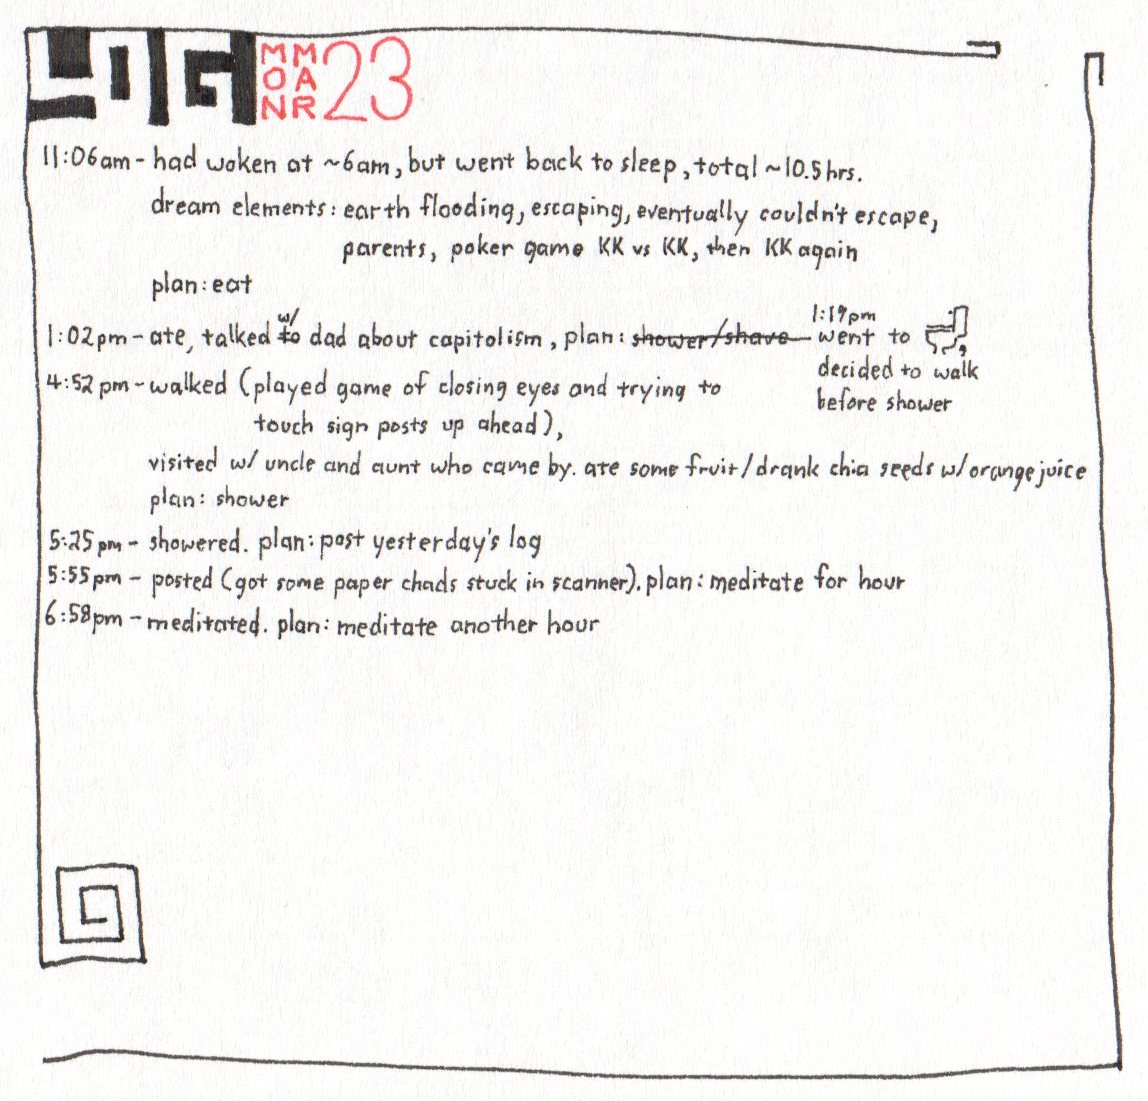 LOG MON MAR 23
11:06am - had woken at ~6am, but went back to sleep, total ~10.5 hrs.
dream elements: earth flooding, escaping, eventually couldn't escape,
parents, poker game KK vs KK, then KK again
plan: eat
1:02pm - ate, talked to w/ dad about capitolism, plan: shower/shave
1:19pm
went to
decided to walk
before shower
4:52pm - walked (played game of closing eyes and trying to
touch sign posts up ahead),
visited w/ uncle and aunt who came by. ate some fruit/drank chia seeds w/ orange juice
plan: shower
5:25pm - showered. plan: post yesterday's log
5:55pm - posted (got some paper chads stuck in scanner). plan: meditate for hour
6:58pm - meditated. plan: meditate another hour